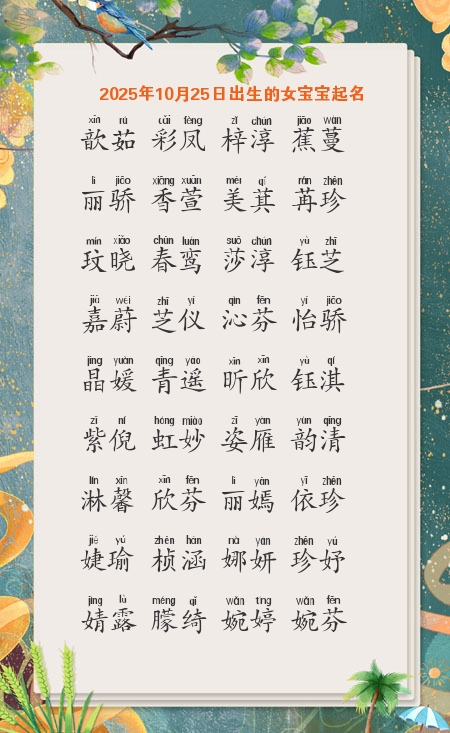 2025年10月25日出生的女宝宝起名
xīn rú cǎi fèng zǐ chún jiāo wàn
歆茹 彩凤 梓淳 蕉蔓
lì jiāo xiāng xuān měi qí rǎn zhēn
丽骄 香萱 美萁 苒珍
mín xiǎo chūn luán suō chún yù zhī
玟晓 春鸾 莎淳 钰芝
jiā wèi zhī yí qìn fēn yí jiāo
嘉蔚 芝仪 沁芬 怡骄
jīng yuán qīng yáo xīn xīn yù qí
晶媛 青遥 昕欣 钰淇
zǐ ní hóng miào zī yàn yùn qīng
紫倪 虹妙 姿雁 韵清
lín xīn xīn fēn lì yān yī zhēn
淋馨 欣芬 丽嫣 依珍
jié yú zhēn hán nà yán zhēn yú
婕瑜 桢涵 娜妍 珍妤
jìng lù méng qǐ wǎn tíng wǎn fēn
婧露 朦绮 婉婷 婉芬